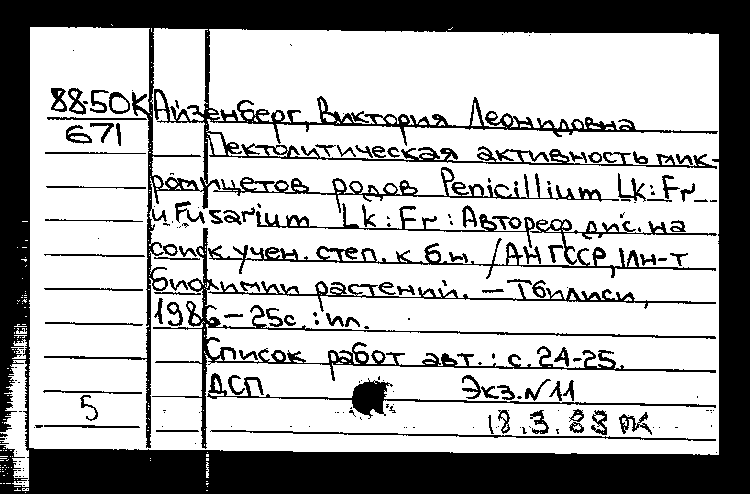 88-50К Айзенберг, Виктория Леонидовна
671
Пектолитическая активность мик-
ромицетов родов Penicillium Lk:Fr
и Fusarium Lk:Fr : Автореф. дис. на
соиск. учен. степ. к.б.н. / АН ГССР, Ин-т
биохимии растений. — Тбилиси,
1986 — 25с. : ил.
Список работ авт. : с. 24-25.
ДСП. Экз. N 11
5
18.3.88